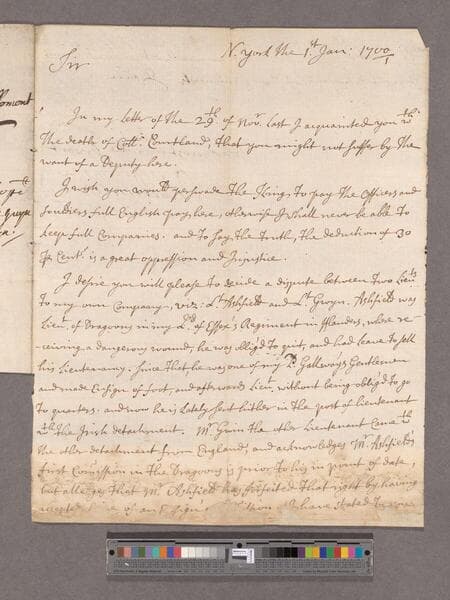 lomont
N. york the 1st Jan: 1700/1
Sir
In my letter of the 29th of Novr. last I acquainted you wth
the death of Coll. Courtland, that you might not suffer by the
want of a Deputy here.
I wish you would perswade the King to pay the Officers and
souldiers full English pay here, otherwise I shall never be able to
keep full Companies. and to say the truth, the deduction of 30
p Cent. is a great oppression and Injustice.
I desire you will please to decide a dispute between two Lieuts
to my own Company, viz: Lt Ashfield and Lt Gwyn. Ashfield was
Lieu. of Dragoons in my Ld. of Essex's Regiment in fflanders, where re-
ceiving a dangerous wound, he was oblig'd to quit, and had leave to sell
his Lieutenancy. since that he was one of my Ld Gallway's Gentlemen
and made Ensign of foot, and afterwards Lieut. without being oblig'd to go
to quarters. and now he is lately sent hither in the post of Lieutenant
wth the Irish detachment. Mr Gwin the other Lieutenant came wth
the other detachment from England, and acknowledges Mr Ashfield's
first Commission in the Dragoons is prior to his in point of date,
but alledges that Mr Ashfield has forfeited that right by having
have stated